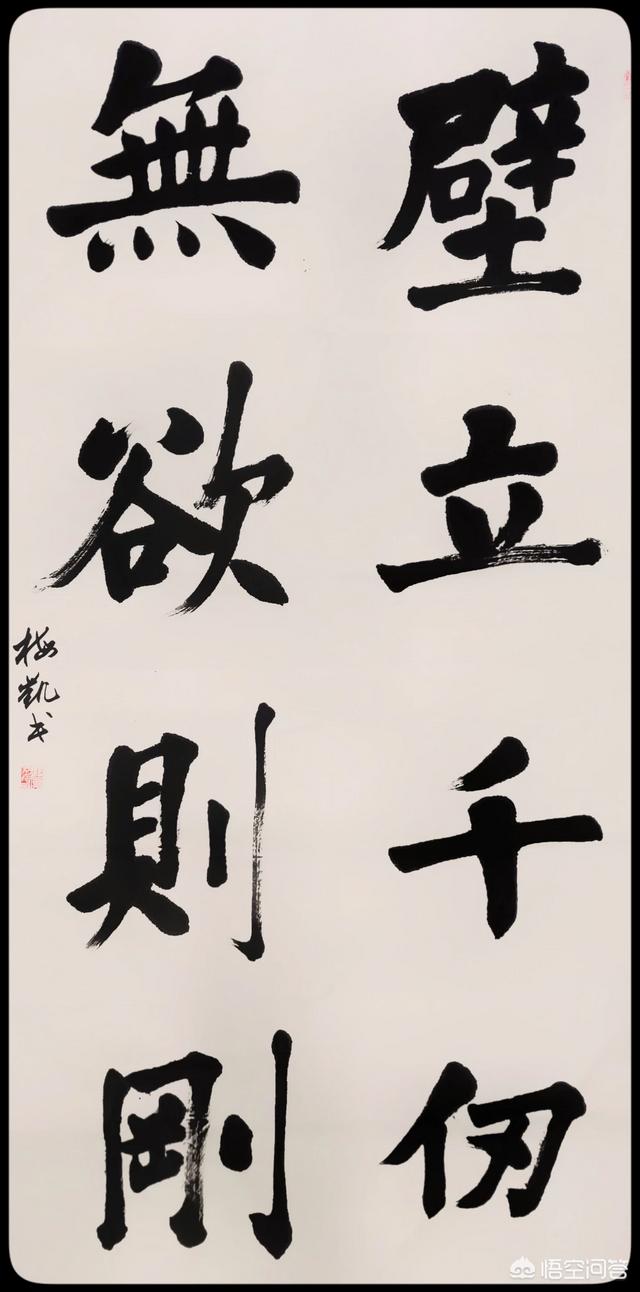 壁立千仞
無欲則剛
梅凱书
悟空问答